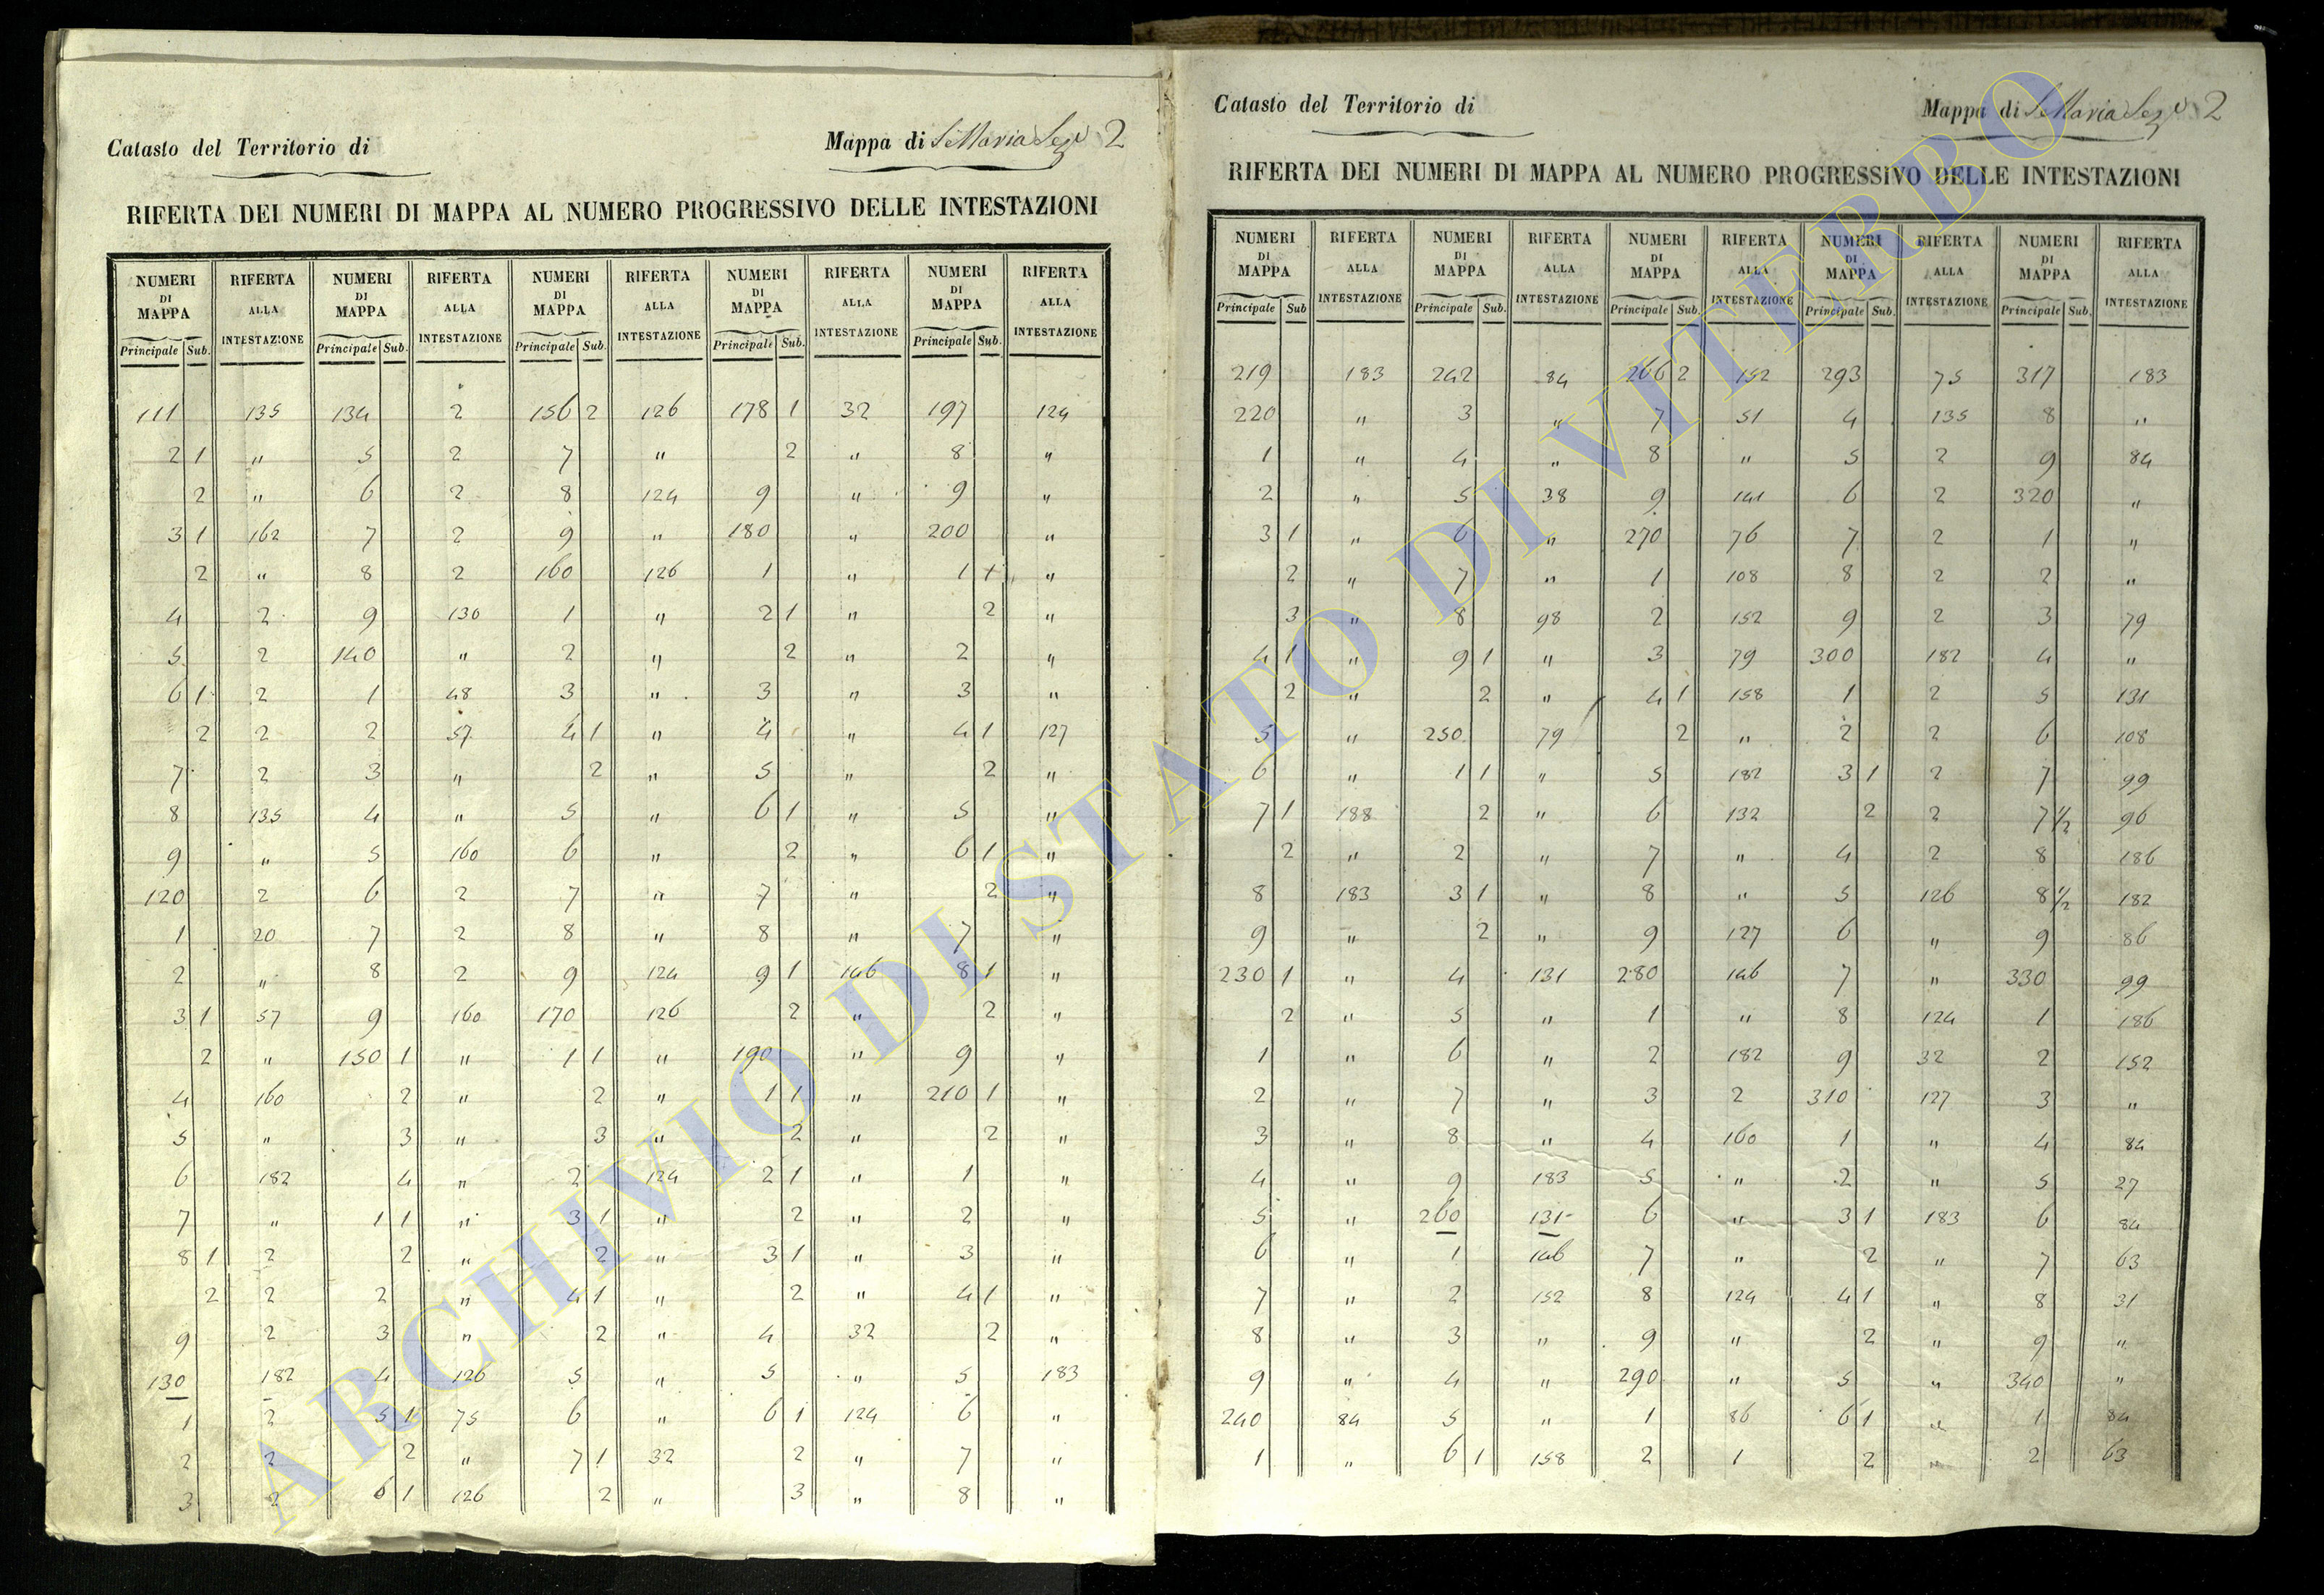 Catasto del Territorio di
Mappa di S. Maria Sez.e 2
RIFERTA DEI NUMERI DI MAPPA AL NUMERO PROGRESSIVO DELLE INTESTAZIONI
NUMERI DI MAPPA RIFERTA ALLA INTESTAZIONE NUMERI DI MAPPA RIFERTA ALLA INTESTAZIONE NUMERI DI MAPPA RIFERTA ALLA INTESTAZIONE NUMERI DI MAPPA RIFERTA ALLA INTESTAZIONE NUMERI DI MAPPA RIFERTA ALLA INTESTAZIONE
Principale Sub. Principale Sub. Principale Sub. Principale Sub. Principale Sub.
111 135 134 2 156 2 126 178 1 32 197 124
2 1 " 5 2 7 " 2 " 8 "
2 " 6 2 8 124 9 " 9 "
3 1 162 7 2 9 " 180 " 200 "
2 " 8 2 160 126 1 " 1 1 "
4 2 9 130 1 " 2 1 " 2 "
5 2 140 " 2 " 2 " 2 "
6 1 2 1 48 3 " 3 " 3 "
2 2 2 57 4 1 " 4 " 4 1 127
7 2 3 " 2 " 5 " 2 "
8 135 4 " 5 " 6 1 " 5 "
9 " 5 160 6 " 2 " 6 1 "
120 2 6 2 7 " 7 " 2 "
1 20 7 2 8 " 8 " 7 "
2 " 8 2 9 124 9 1 146 8 1 "
3 1 57 9 160 170 126 2 " 2 "
2 " 150 1 " 1 1 " 190 " 9 "
4 160 2 " 2 " 1 1 " 210 1 "
5 " 3 " 3 " 2 " 2 "
6 182 4 " 2 124 2 1 " 1 "
7 " 1 1 " 3 1 " 2 " 2 "
8 1 2 2 " 2 " 3 1 " 3 "
2 2 2 " 4 1 " 2 " 4 1 "
9 2 3 " 2 " 4 32 2 "
130 182 4 126 5 " 5 " 5 183
1 2 5 1 75 6 " 6 1 124 6 "
2 2 2 " 7 1 32 2 " 7 "
3 2 6 1 126 2 " 3 " 8 "
Catasto del Territorio di
Mappa di S. Maria Sez.e 2
RIFERTA DEI NUMERI DI MAPPA AL NUMERO PROGRESSIVO DELLE INTESTAZIONI
NUMERI DI MAPPA RIFERTA ALLA INTESTAZIONE NUMERI DI MAPPA RIFERTA ALLA INTESTAZIONE NUMERI DI MAPPA RIFERTA ALLA INTESTAZIONE NUMERI DI MAPPA RIFERTA ALLA INTESTAZIONE NUMERI DI MAPPA RIFERTA ALLA INTESTAZIONE
Principale Sub Principale Sub. Principale Sub. Principale Sub. Principale Sub.
219 183 242 84 266 2 152 293 75 317 183
220 " 3 " 7 51 4 135 8 "
1 " 4 " 8 " 5 2 9 84
2 " 5 38 9 141 6 2 320 "
3 1 " 6 " 270 76 7 2 1 "
2 " 7 " 1 108 8 2 2 "
3 " 8 98 2 152 9 2 3 79
4 1 " 9 1 " 3 79 300 182 4 "
2 " 2 " 4 1 158 1 2 5 131
5 " 250 79 2 " 2 2 6 108
6 " 1 1 " 5 182 3 1 2 7 99
7 1 188 2 " 6 132 2 2 7 1/2 96
2 " 2 " 7 " 4 2 8 186
8 183 3 1 " 8 " 5 126 8 1/2 182
9 " 2 " 9 127 6 " 9 86
230 1 " 4 131 280 146 7 " 330 99
2 " 5 " 1 " 8 124 1 186
1 " 6 " 2 182 9 32 2 152
2 " 7 " 3 2 310 127 3 "
3 " 8 " 4 160 1 " 4 84
4 " 9 183 5 " 2 " 5 27
5 " 260 131 6 " 3 1 183 6 84
6 " 1 146 7 " 2 " 7 63
7 " 2 152 8 124 4 1 " 8 31
8 " 3 " 9 " 2 " 9 "
9 " 4 " 290 " 5 " 340 "
240 84 5 " 1 86 6 1 " 1 84
1 " 6 1 158 2 1 2 " 2 63
ARCHIVIO DI STATO DI VITERBO